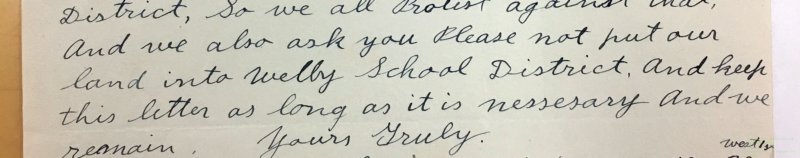 District, So we all Protest against that,
And we also ask you Please not put our
land into Welby School District. And keep
this letter as long as it is nessesary And we
remain. Yours Truly.